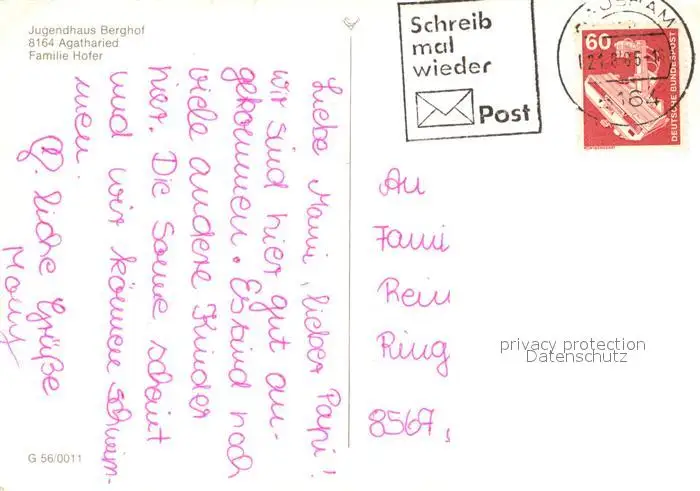 Jugendhaus Berghof
8164 Agatharied
Familie Hofer
Liebe Mami, lieber Papi!
wir sind hier gut an-
gekommen. Es sind noch
viele andere Kinder
hier. Die Sonne scheint
und wir können schwim-
men.
liebe Grüße
G 56/0011
Schreib
mal
wieder
Post
HAUSHAM
8164
60
DEUTSCHE BUNDESPOST
An
Fami
Rein
Ring
8567,
privacy protection
Datenschutz